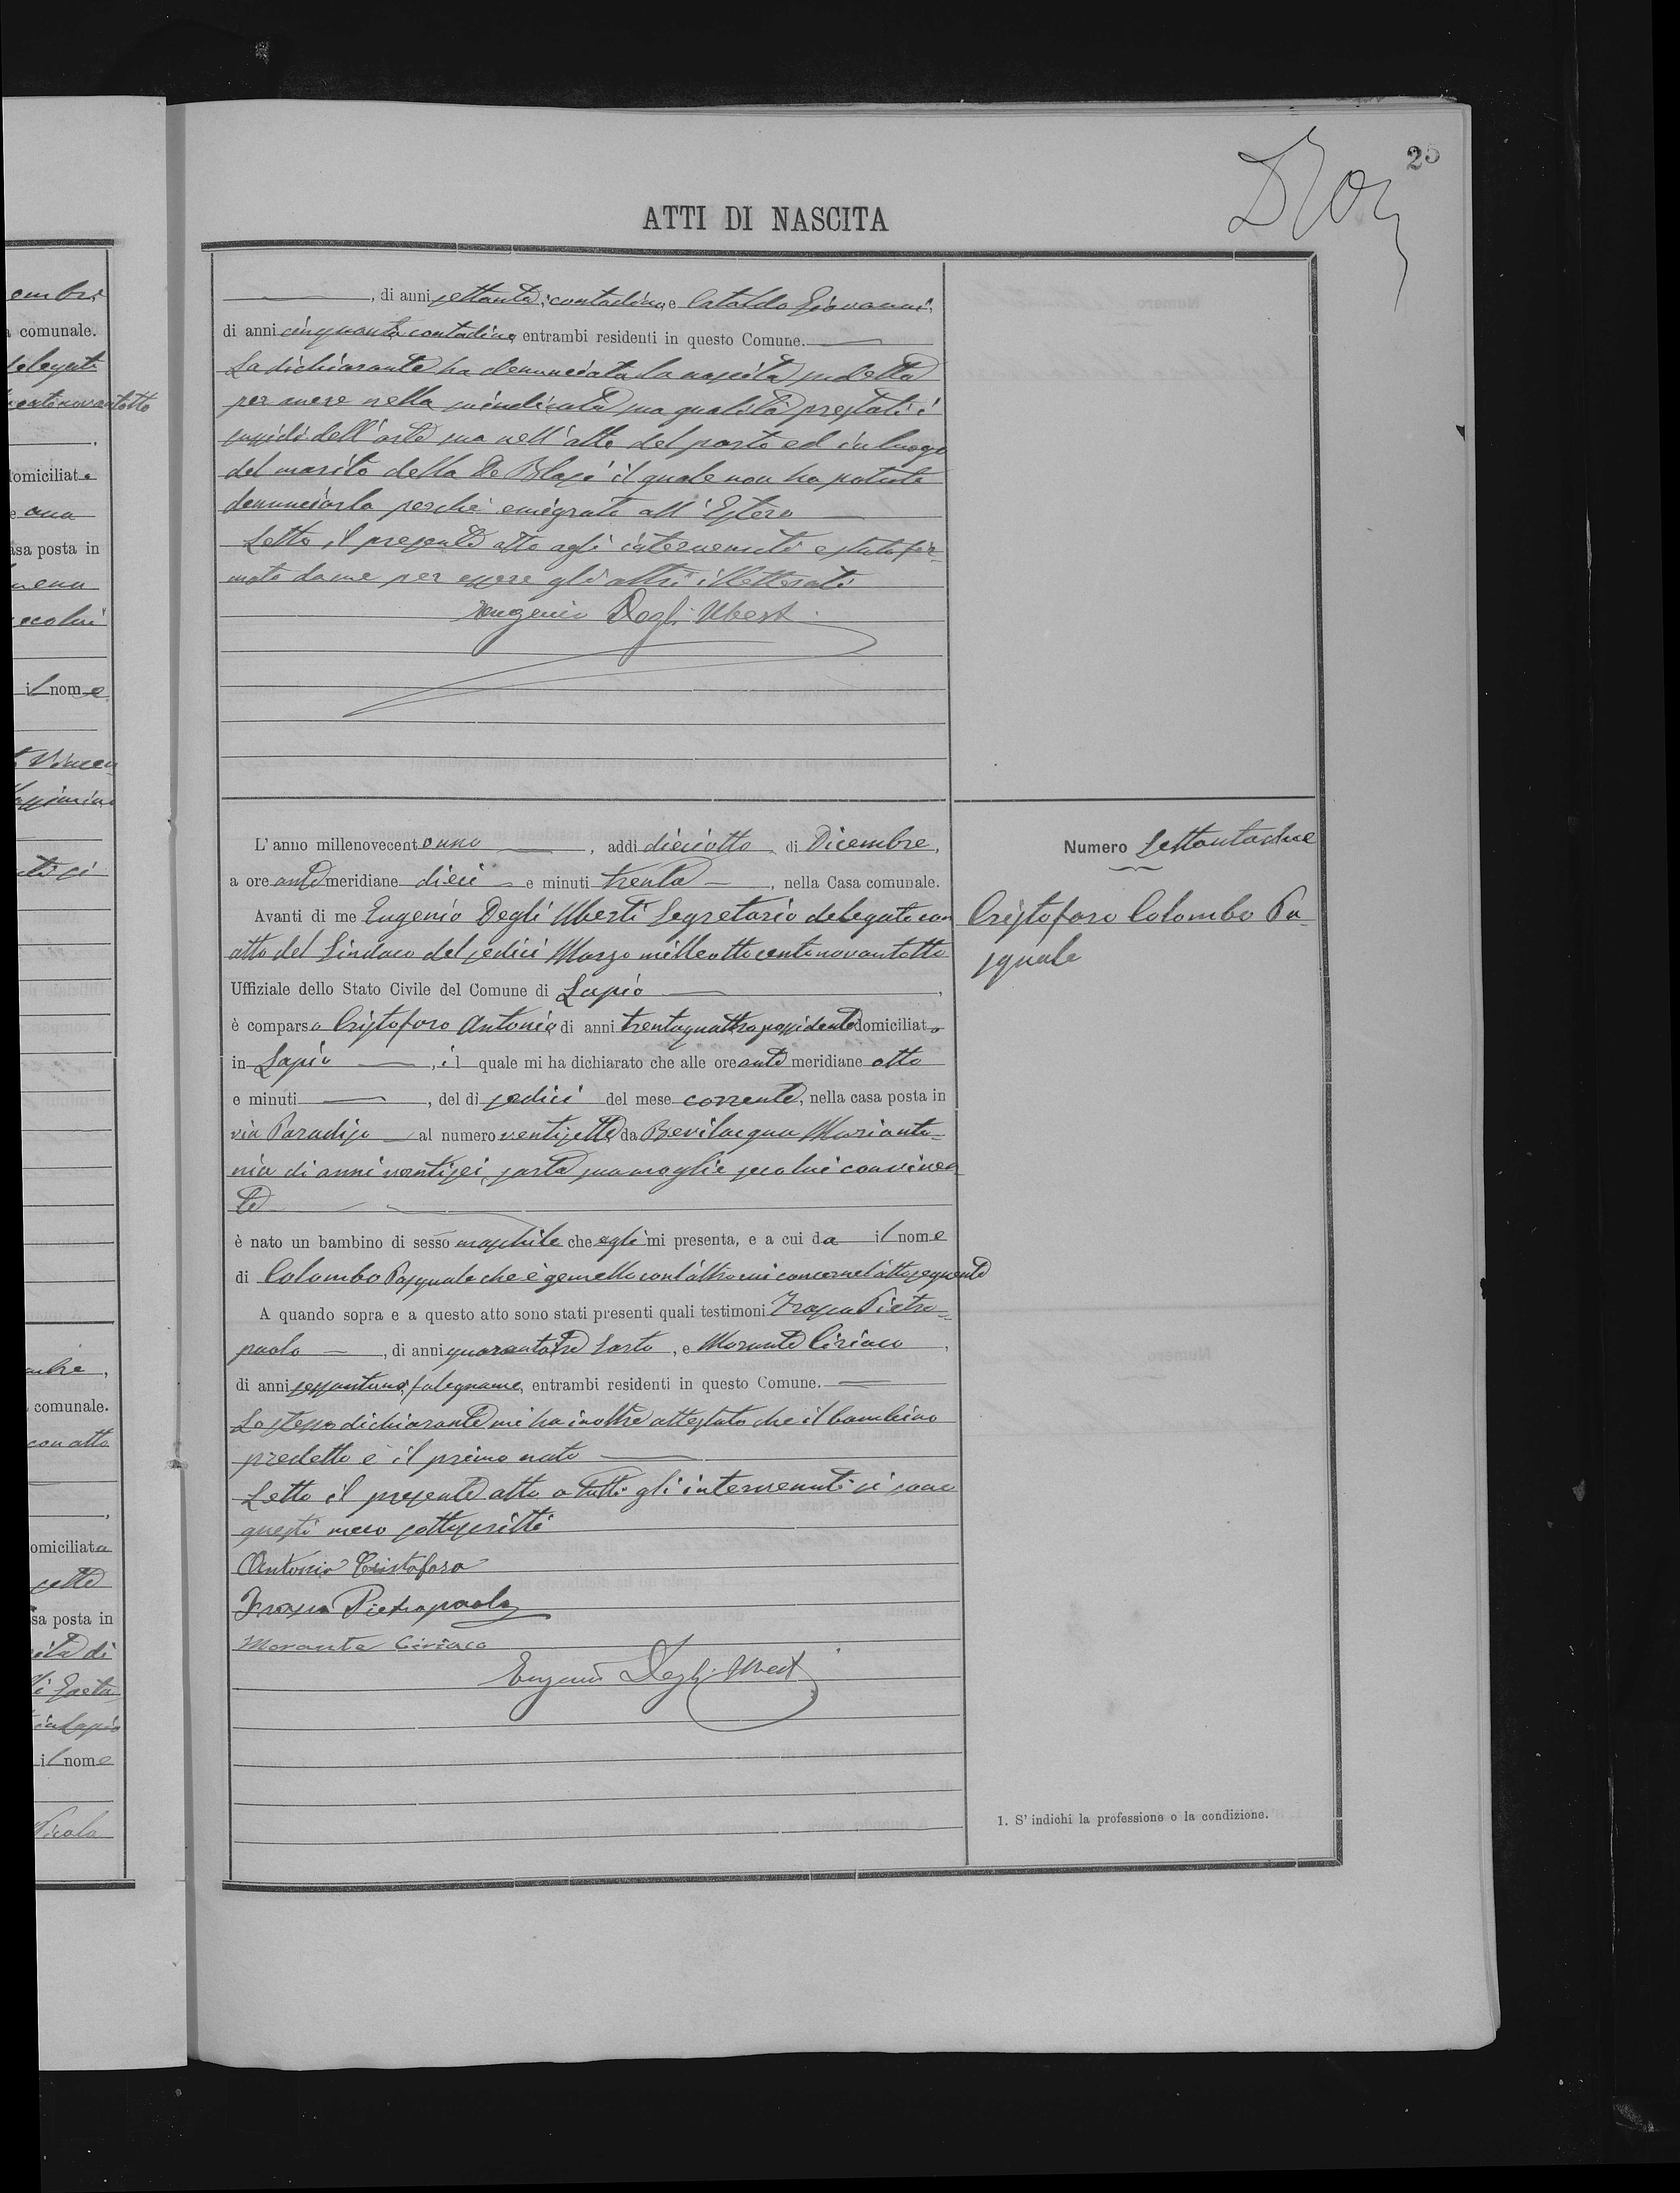 25
ATTI DI NASCITA
embre
a comunale.
delegato
centonovantotto
domiciliata
e una
asa posta in
il nome
omiciliata
sa posta in
in Lapio
il nome
Nicola
comunale.
con atto
, di anni settanta, contadino, e Cataldo Giovanni,
di anni cinquanta contadino, entrambi residenti in questo Comune.
La dichiarante ha denunciata la nascita sudetta
per avere nella suindicata sua qualità prestati i
sussidi dell'arte sua nell'atto del parto ed in luogo
del marito della De Blasi il quale non ha potuto
denunciarla perchè emigrato all'Estero
Letto il presente atto agli intervenuti è stato fir-
mato da me per essere gli altri illetterati
Eugenio Degli Uberti
L'anno millenovecentouno, addì dieciotto di Dicembre,
a ore antemeridiane dieci e minuti trenta, nella Casa comunale.
Avanti di me Eugenio Degli Uberti Segretario delegato con
atto del Sindaco del sedici Marzo milleottocentonovantotto
Uffiziale dello Stato Civile del Comune di Lapio,
è comparso Cristoforo Antonio, di anni trentaquattro possidente domiciliato
in Lapio, il quale mi ha dichiarato che alle ore antemeridiane otto
e minuti, del dì sedici del mese corrente, nella casa posta in
via Paradiso al numero ventisette, da Bevilacqua Marianto-
nia di anni ventisei, sarta sua moglie seco lui conviven
te
è nato un bambino di sesso maschile che egli mi presenta, e a cui da il nome
di Colombo Pasquale che è gemello con l'altro cui concerne l'atto seguente
A quando sopra e a questo atto sono stati presenti quali testimoni Frasca Pietro-
paolo, di anni quarantatre Sarto, e Morante Ciriaco,
di anni sessantuno, falegname, entrambi residenti in questo Comune.
Lo stesso dichiarante mi ha inoltre attestato che il bambino
predetto è il primo nato
Letto il presente atto a tutti gli intervenuti si sono
questi meco sottoscritti
Antonio Cristoforo
Frasca Pietropaolo
Morante Ciriaco
Eugenio Degli Uberti
Numero Settantadue
Cristoforo Colombo Pa-
squale
1. S'indichi la professione o la condizione.